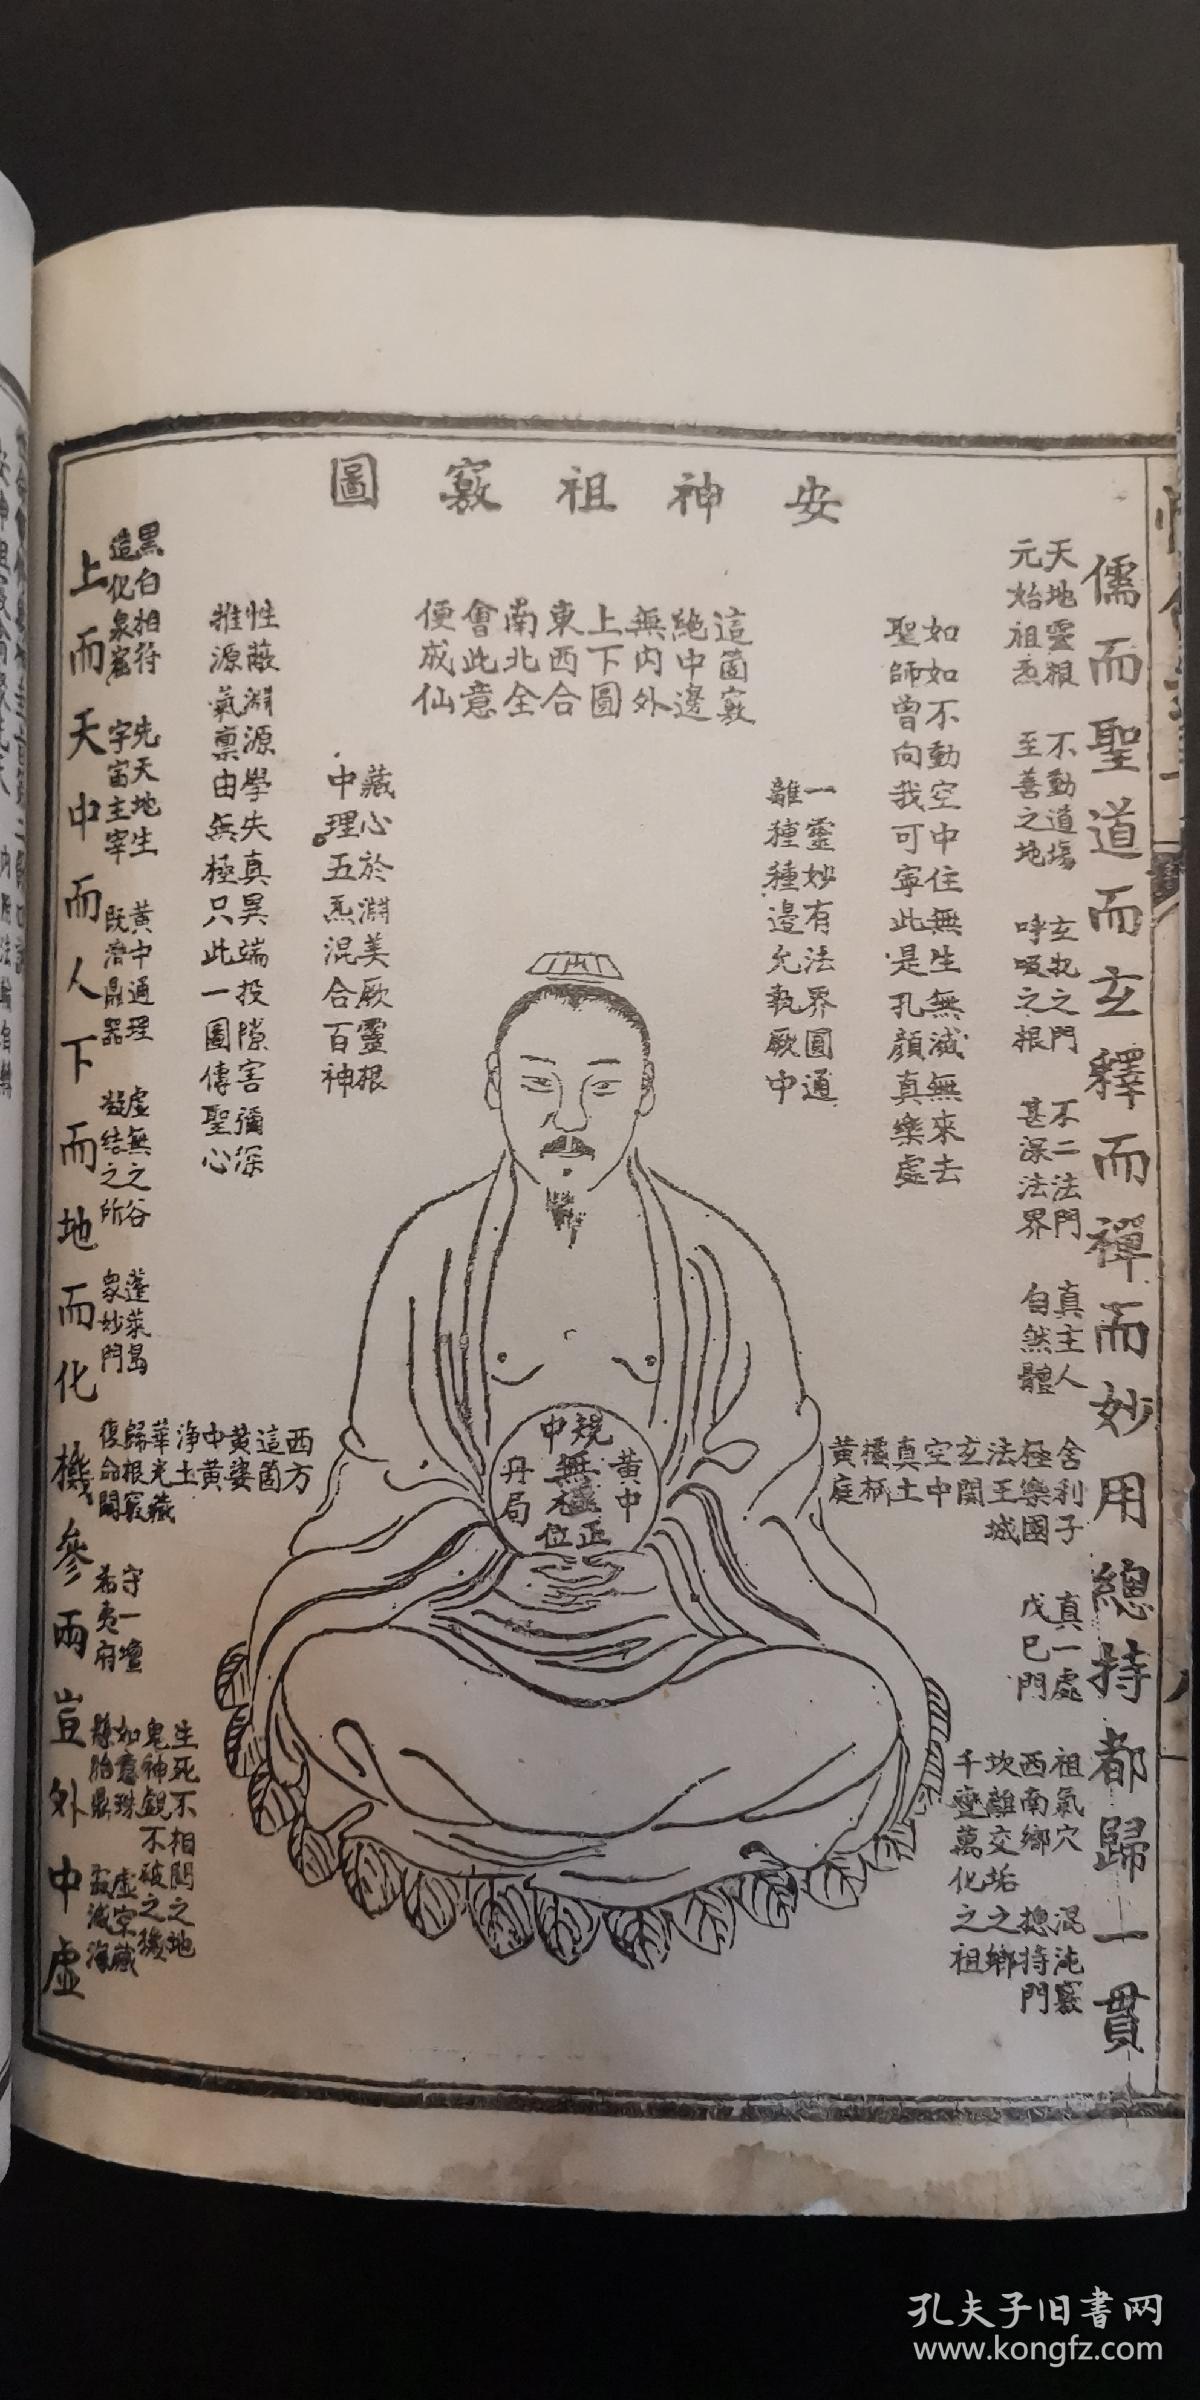 安神祖竅圖
儒而聖道而玄釋而禪而妙用總持都歸一貫
天地靈根
元始祖炁
不動道場
至善之地
玄牝之門
呼吸之根
不二法門
甚深法界
真主人
自然體
舍利子
極樂國
法王城
玄關
空中
真土
橐柄
黃庭
真一處
戊已門
祖氣穴
西南鄉
坎離交垢之鄉
千變萬化之祖
混沌竅
總持門
如如不動空中住無生無滅無來去
聖師曾向我可寧此是孔顏真樂處
一靈妙有法界圓通
離種種邊允執厥中
這箇竅
絕中邊
無內外
上下圓
東西合
南北全
會此意
便成仙
藏心於淵美厥靈根
中理五炁混合百神
性蔽淵源學失真異端投隙害彌深
推源氣稟由無極只此一圖傳聖心
規中
黃中
無極
正位
丹局
西方
這箇
黃婆
中黃
淨土
華光藏
歸根竅
復命關
黑白相符
造化泉窟
先天地生
宇宙主宰
黃中通理
既濟鼎器
虛無之谷
凝結之所
蓬萊島
眾妙門
守一壇
希夷府
生死不相關之地
鬼神覷不破之機
如意珠
懸胎鼎
虛空藏
寂滅海
上而天中而人下而地而化機參兩豈外中虛
孔夫子旧书网
www.kongfz.com